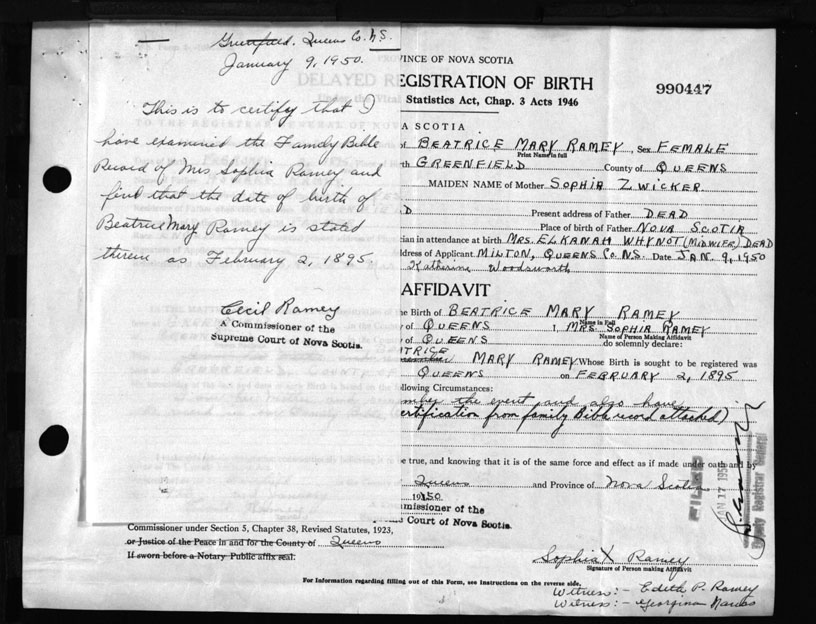 Greenfield. Queens Co. N.S.
January 9, 1950.
This is to certify that I
have examined the Family Bible
Record of Mrs Sophia Ramey and
find that the date of birth of
Beatrice Mary Ramey is stated
therein as February 2, 1895.
Cecil Ramey
A Commissioner of the
Supreme Court of Nova Scotia.
INCE OF NOVA SCOTIA
EGISTRATION OF BIRTH
990447
Statistics Act, Chap. 3 Acts 1946
A SCOTIA
of BEATRICE MARY RAMEY, Sex FEMALE
Print Name in full
th GREENFIELD County of QUEENS
MAIDEN NAME of Mother SOPHIA ZWICKER
D Present address of Father DEAD
Place of birth of Father NOVA SCOTIA
cian in attendance at birth MRS. ELKANAH WHYNOT (MIDWIFE) DEAD
dress of Applicant MILTON, QUEENS CO. N.S. Date JAN. 9, 1950
Katherine Woodsworth
AFFIDAVIT
he Birth of BEATRICE MARY RAMEY
Name in Full
of QUEENS I, MRS. SOPHIA RAMEY
Name of Person Making Affidavit
of QUEENS do solemnly declare:
ATRICE
MARY RAMEY Whose Birth is sought to be registered was
QUEENS on FEBRUARY 2, 1895
llowing Circumstances:
the event and also have
ertification from family Bible record attached)
be true, and knowing that it is of the same force and effect as if made under oath and by
Queens and Province of Nova Scotia
1950
missioner of the
Court of Nova Scotia.
FILED
JAN 17 195
Deputy Registrar General
Commissioner under Section 5, Chapter 38, Revised Statutes, 1923,
or Justice of the Peace in and for the County of Queens
If sworn before a Notary Public affix seal.
Sophia X Ramey
Signature of Person making Affidavit
For Information regarding filling out of this Form, see Instructions on the reverse side.
Witness:- Edith P. Ramey
Witness:- Georgina